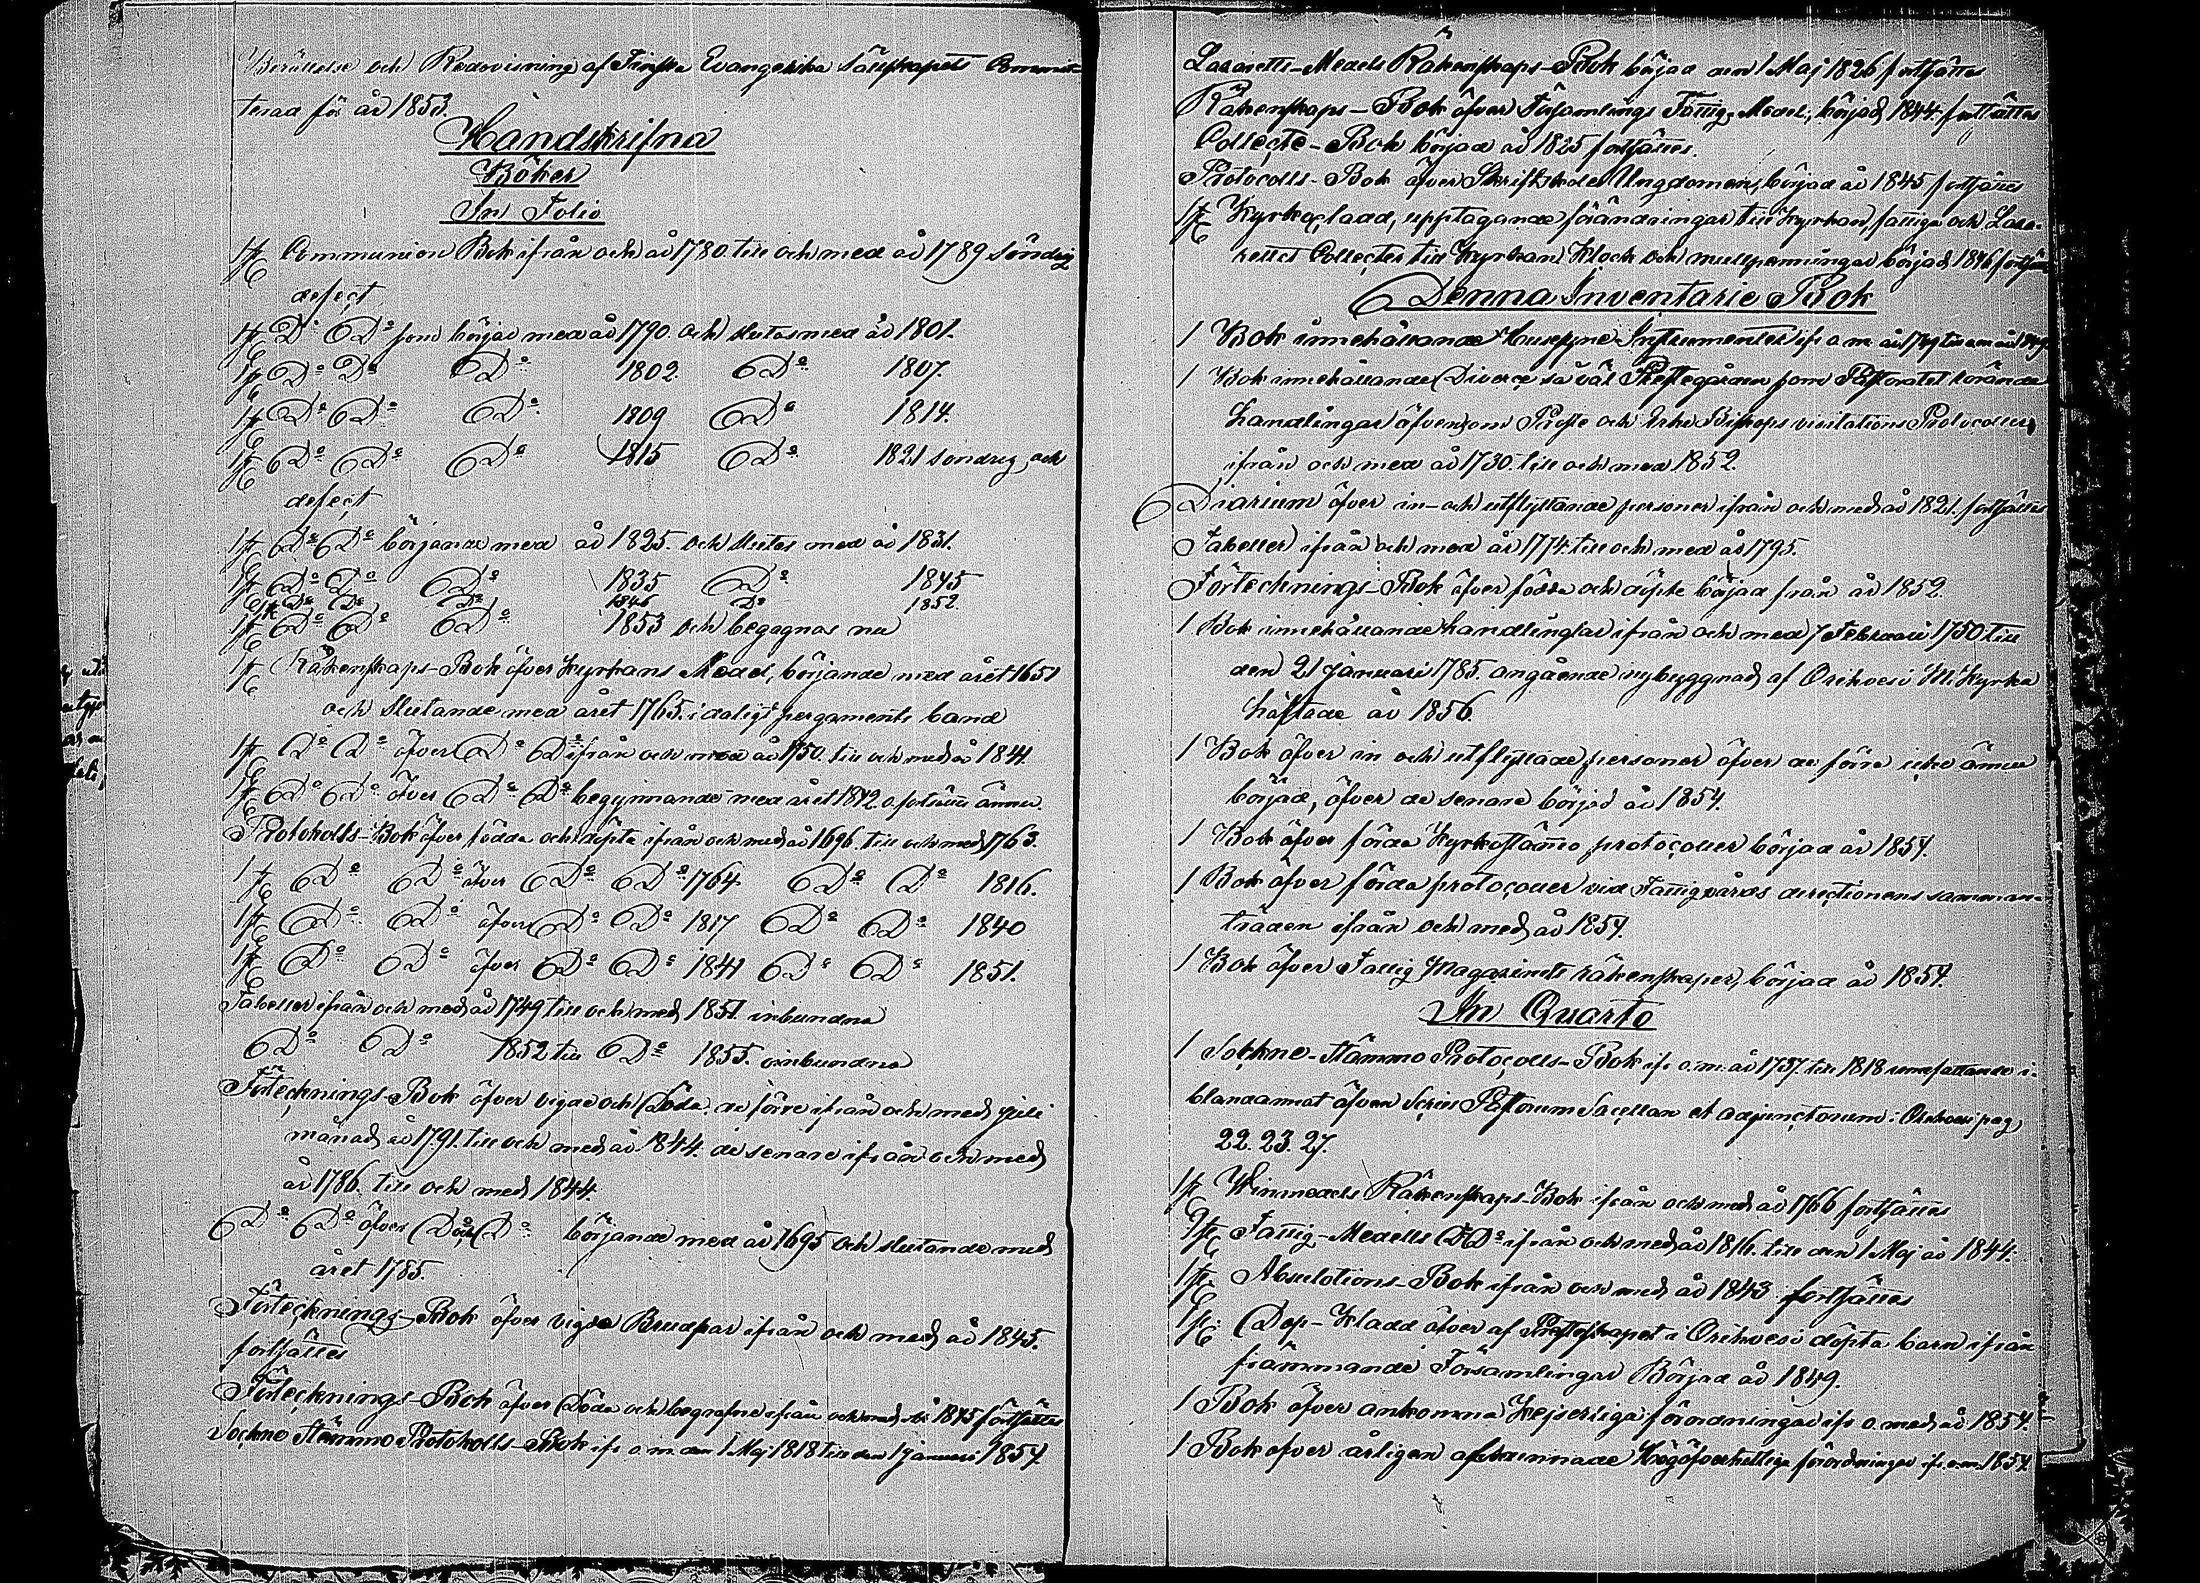 Berättelse och Redovisning af Finska Evangeliska Sällskapets Commit-
terad för år 1853.
Handskrifna
Böker
In Folio
1 st Communion Bok ifrån och år 1780. till och med år 1789 söndrig
defect
1 st Do Do som börjar med år 1790. och slutas med år 1801.
1 st Do Do Do 1802. Do 1807.
1 st Do Do Do 1809 Do 1814.
1 st Do Do Do 1815 Do 1821 söndrig och
defect
1 st Do Do börjande med år 1825. och slutas med år 1831.
1 st Do Do Do 1835 Do 1845
1 st Do Do Do 1846 Do 1852.
1 st Do Do Do 1853 och begagnas nu
1 st Räkenskaps-Bok öfver Kyrkans Medel, börjande med året 1651
och slutande med året 1765. i dåligt pergaments band
1 st Do Do öfver Do Do ifrån och med år 1750. till och med år 1841.
1 st Do Do öfver Do Do begynnande med året 1842. o fortsättes ännu.
Protokolls-Bok öfver födda och döpta ifrån och med år 1696. till och med 1763.
1 st Do Do öfver Do Do 1764 Do Do 1816.
1 st Do Do öfver Do Do 1817 Do Do 1840
1 st Do Do öfver Do Do 1841 Do Do 1851.
Tabeller ifrån och med år 1749 till och med 1851. inbundna
Do Do 1852 till Do 1855. oinbundna
Förtecknings-Bok öfver vigde och Döda. de förre ifrån och med Juli
månad år 1791. till och med år 1844. de senare ifrån och med
år 1786. till och med 1844.
Do Do öfver Do och Do börjande med år 1695 och slutande med
året 1785.
Förtecknings-Bok öfver vigda Brudpar ifrån och med år 1845.
fortsättes
Förtecknings-Bok öfver Döda och begrafne ifrån och med år 1845 fortsättes
Sockne Stämmo Protokolls-Bok ifr. o. m. den 1 Maj 1818 till den 1 Januari 1854.
Lazaretts-Medels Räkenskaps-Bok börjad den 1 Maj 1826 fortsättes
Räkenskaps-Bok öfver Församlings Fattig-Medel, börjad 1844. fortsättes
Collecte-Bok börjad år 1825 fortsättes.
Protocolls-Bok öfver Skriftskole Ungdomen, börjad år 1845 fortsättes
1 st Kyrkokladd, upptagande förändringar till Kyrkan, fattiga och Laza-
rettet Collecter till Kyrkan Klock och mullpenningar börjad 1846 fortsättes
Denna Inventarie Bok
1 Bok innehållande Husesyne Instrumenter ifr. o. m. år 1749 till o. m. år 1849.
1 Bok innehållande Diverse så väl Prestegården som Pastoratet rörande
handlingar äfvensom Proste och Erke Biskops visitations Protocoller,
ifrån och med år 1730. till och med 1852.
Diarium öfver in- och utflyttande personer ifrån och med år 1821. fortsättes
Tabeller ifrån och med år 1774. till och med år 1795.
Förtecknings-Bok öfver födda och döpte börjad från år 1852.
1 Bok innehållande handlingar ifrån och med 7 Februari 1750 till
den 21 Januari 1785. angående nybyggnad af Orihvesi M. Kyrka
häftade år 1856.
1 Bok öfver in och utflyttade personer öfver de förre icke ännu
börjad, öfver de senare börjad år 1854.
1 Bok öfver förda Kyrkostämmo protocoller börjad år 1854.
1 Bok öfver förda protocoller vid Fattigvårds directionens samman-
träden ifrån och med år 1854.
1 Bok öfver Fattig Magazinets räkenskaper, börjad år 1854.
In Quarto
1 Sockne-Stämmo Protocolls-Bok ifr. o. m. år 1757. till 1818 innefattande i-
blandannat äfven Series Pastorum Sacellan et adjunctorum i Orihvesi pag.
22. 23. 27.
1 st Winmedels Räkenskaps-Bok ifrån och med år 1766 fortsättes
1 st Fattig-Medells Do ifrån och med år 1816. till den 1 Maj år 1844.
1 st Absolutions-Bok ifrån och med år 1843 fortsättes
1 st Dop-Kladd öfver af Presteskapet i Orihvesi döpta barn ifrån
främmande Församlingar Börjad år 1849.
1 Bok öfver ankomna Kejserliga förordningar ifr. o. med år 1854.
1 Bok öfver årligen afkunnade Högöfverhetliga förordningar ifr. o. m. 1854